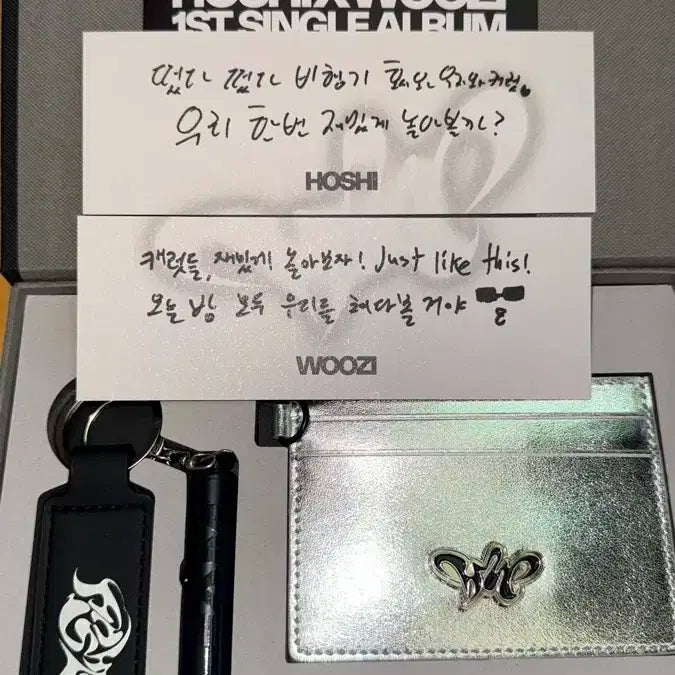 HOSHI X WOOZI
1ST SINGLE ALBUM
떴다 떴다 비행기 호시와 우지와 커럿,
우리 한번 재밌게 놀아볼까?
HOSHI
캐럿들, 재밌게 놀아보자! Just like this!
오늘 밤 모두 우리를 쳐다볼 거야
WOOZI